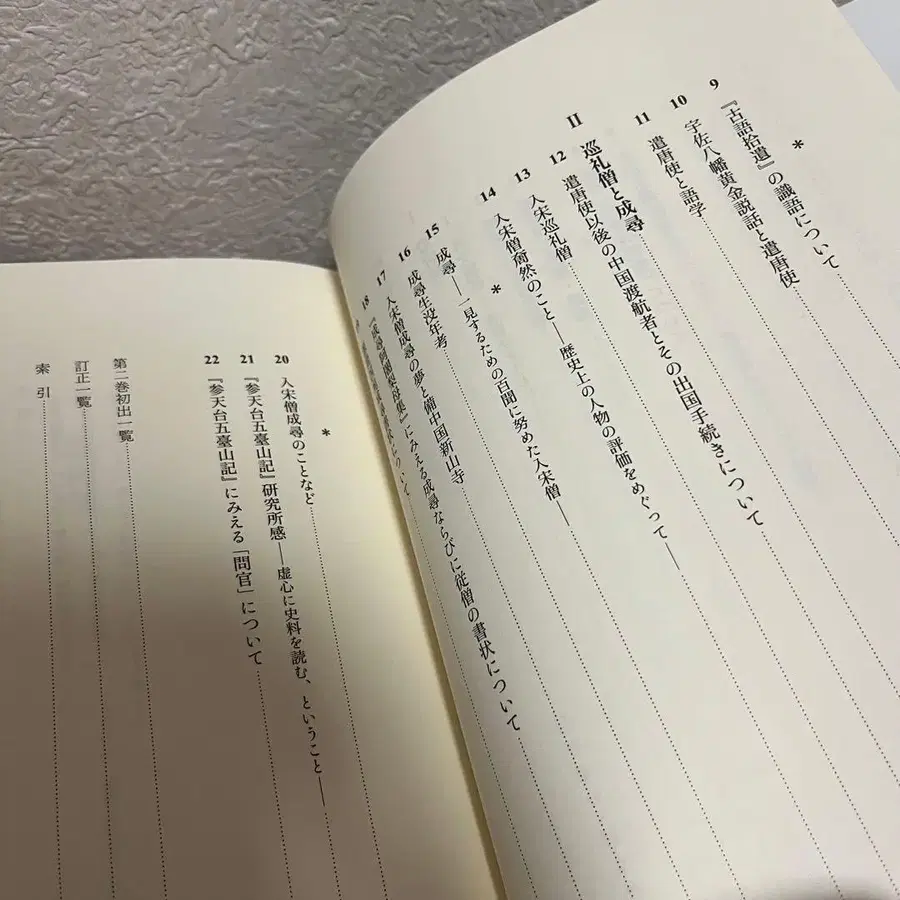 *
9 『古語拾遺』の識語について
10 宇佐八幡黄金説話と遣唐使
11 遣唐使と語学
II 巡礼僧と成尋
12 遣唐使以後の中国渡航者とその出国手続きについて
13 入宋巡礼僧
14 入宋僧奝然のこと——歴史上の人物の評価をめぐって——
*
15 成尋——一見するための百聞に努めた入宋僧——
16 成尋生没年考
17 入宋僧成尋の夢と備中国新山寺
18 『成尋阿闍梨母集』にみえる成尋ならびに従僧の書状について
*
20 入宋僧成尋のことなど
21 『参天台五臺山記』研究所感——虚心に史料を読む、ということ——
22 『参天台五臺山記』にみえる「問官」について
第二巻初出一覧
訂正一覧
索引